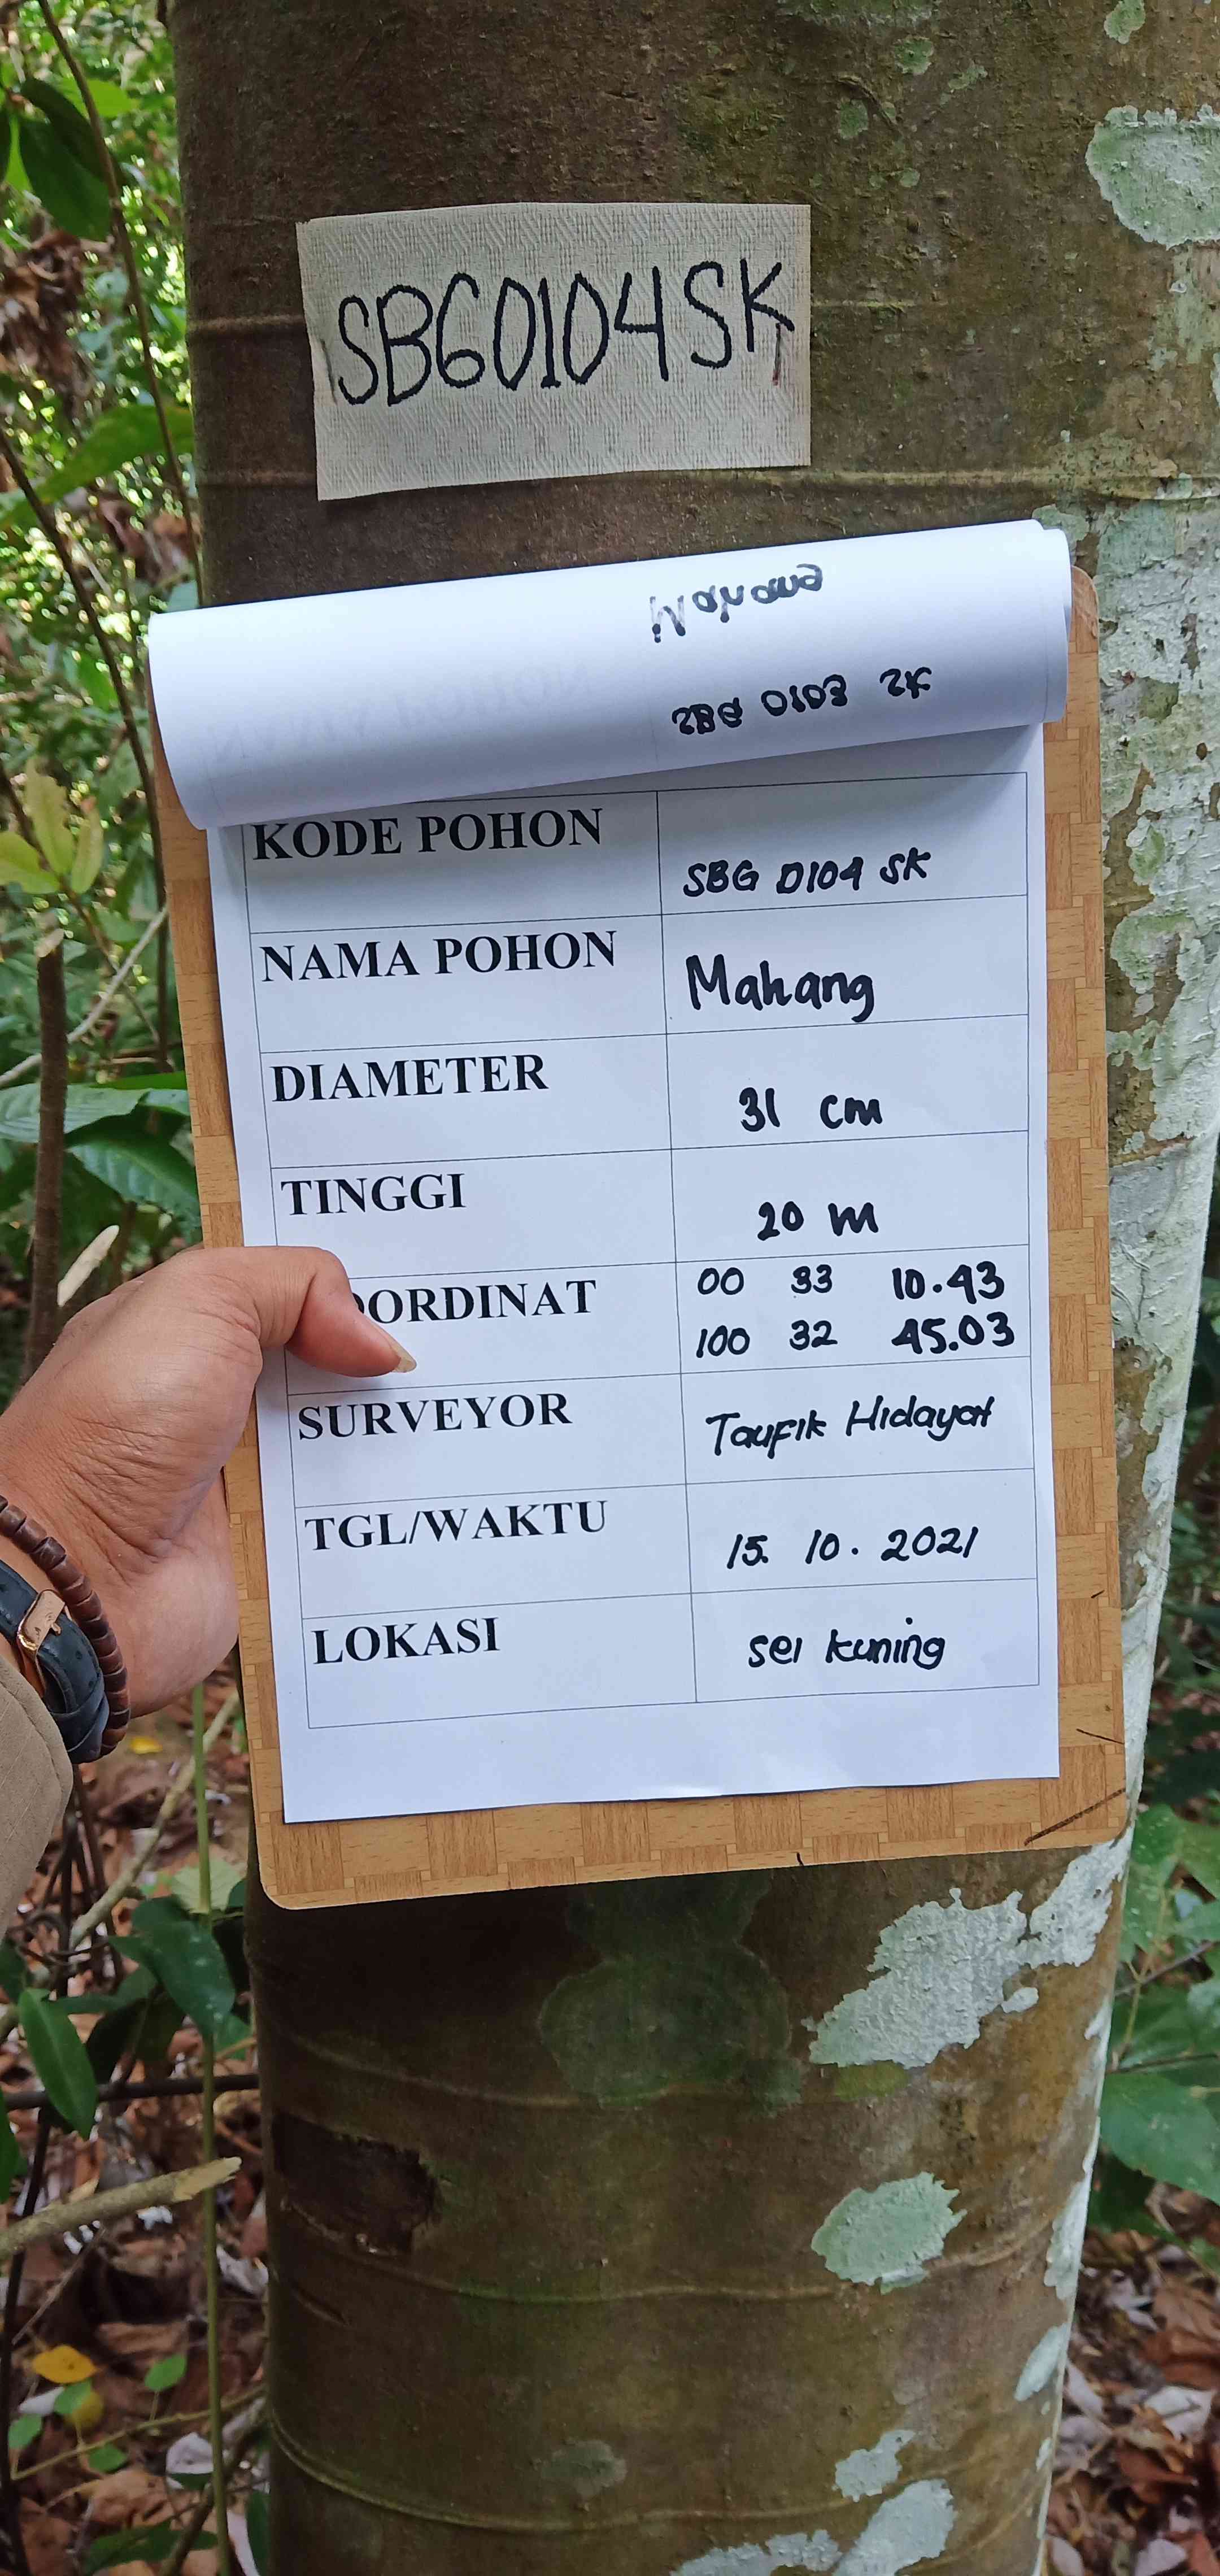 SBG0104SK
Mahang
SBG 0103 SK
KODE POHON
SBG 0104 SK
NAMA POHON
Mahang
DIAMETER
31 cm
TINGGI
20 m
OORDINAT
00 33 10.43
100 32 45.03
SURVEYOR
Taufik Hidayat
TGL/WAKTU
15. 10. 2021
LOKASI
Sei Kuning